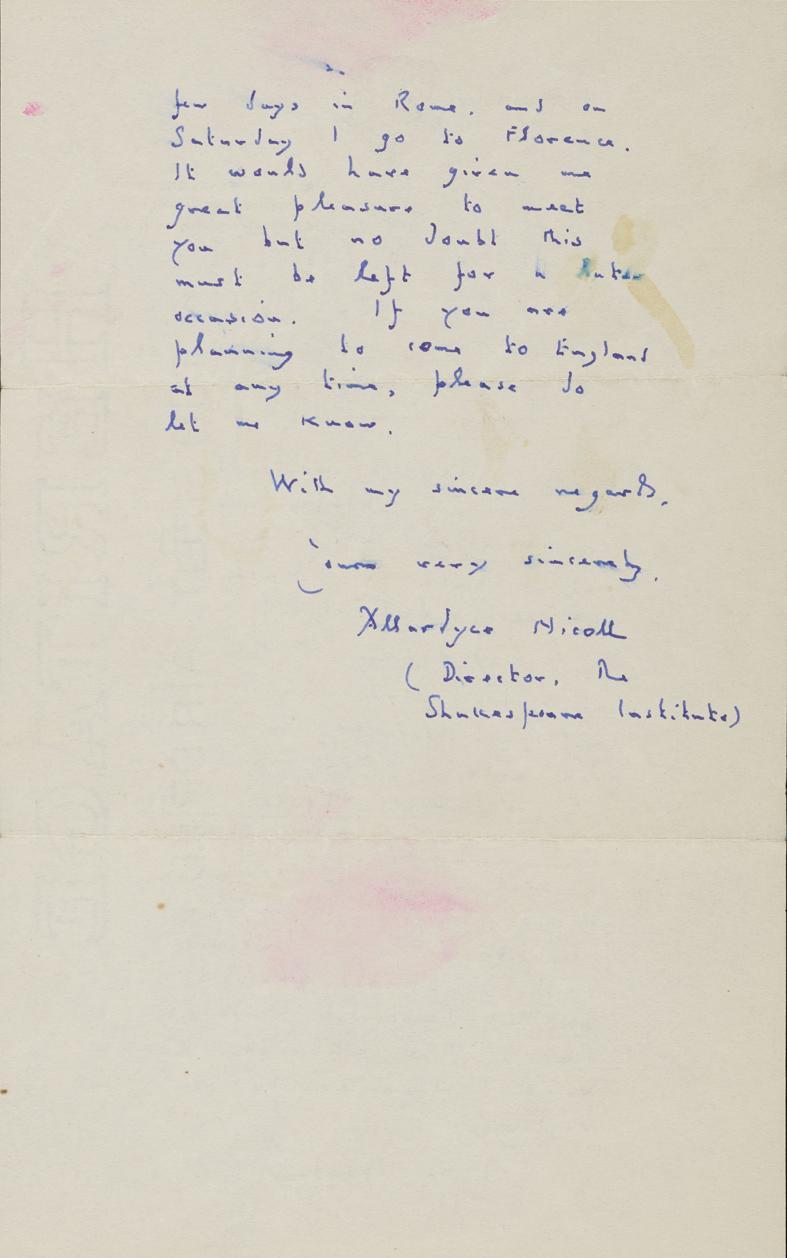 2.
few days in Rome, and on
Saturday I go to Florence.
It would have given me
great pleasure to meet
you but no doubt this
must be left for a later
occasion. If you are
planning to come to England
at any time, please do
let me know.
With my sincere regards,
Yours very sincerely,
Allardyce Nicoll
(Director, The
Shakespeare Institute)